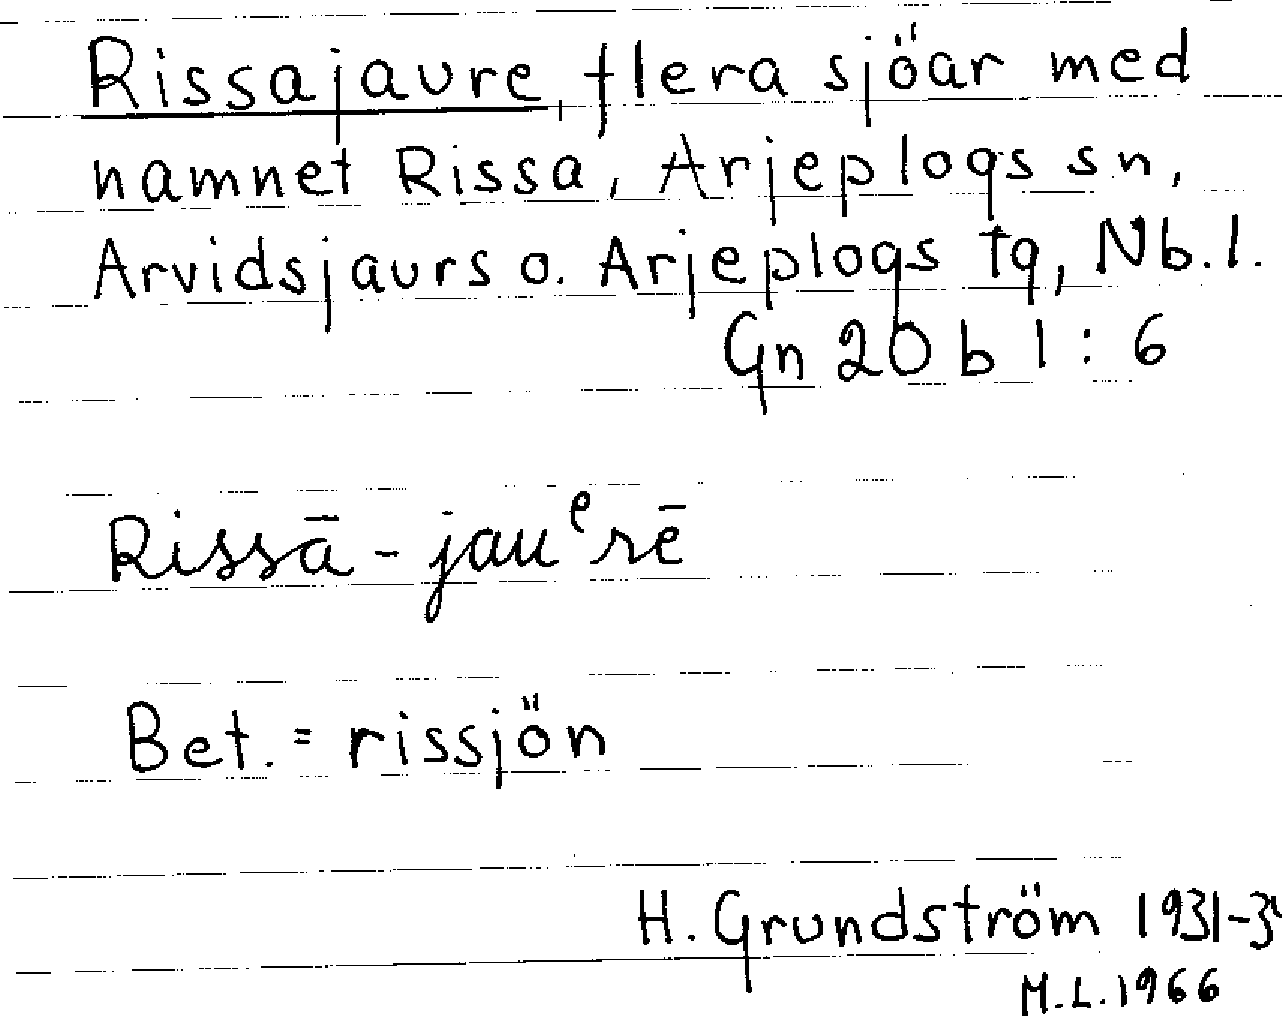 Rissajaure, flera sjöar med
namnet Rissa, Arjeplogs sn,
Arvidsjaurs o. Arjeplogs tg, Nb.l.
Gn 20 b 1 : 6
Rissā - jauᵉrē
Bet. = rissjön
H. Grundström 1931-3
M.L. 1966